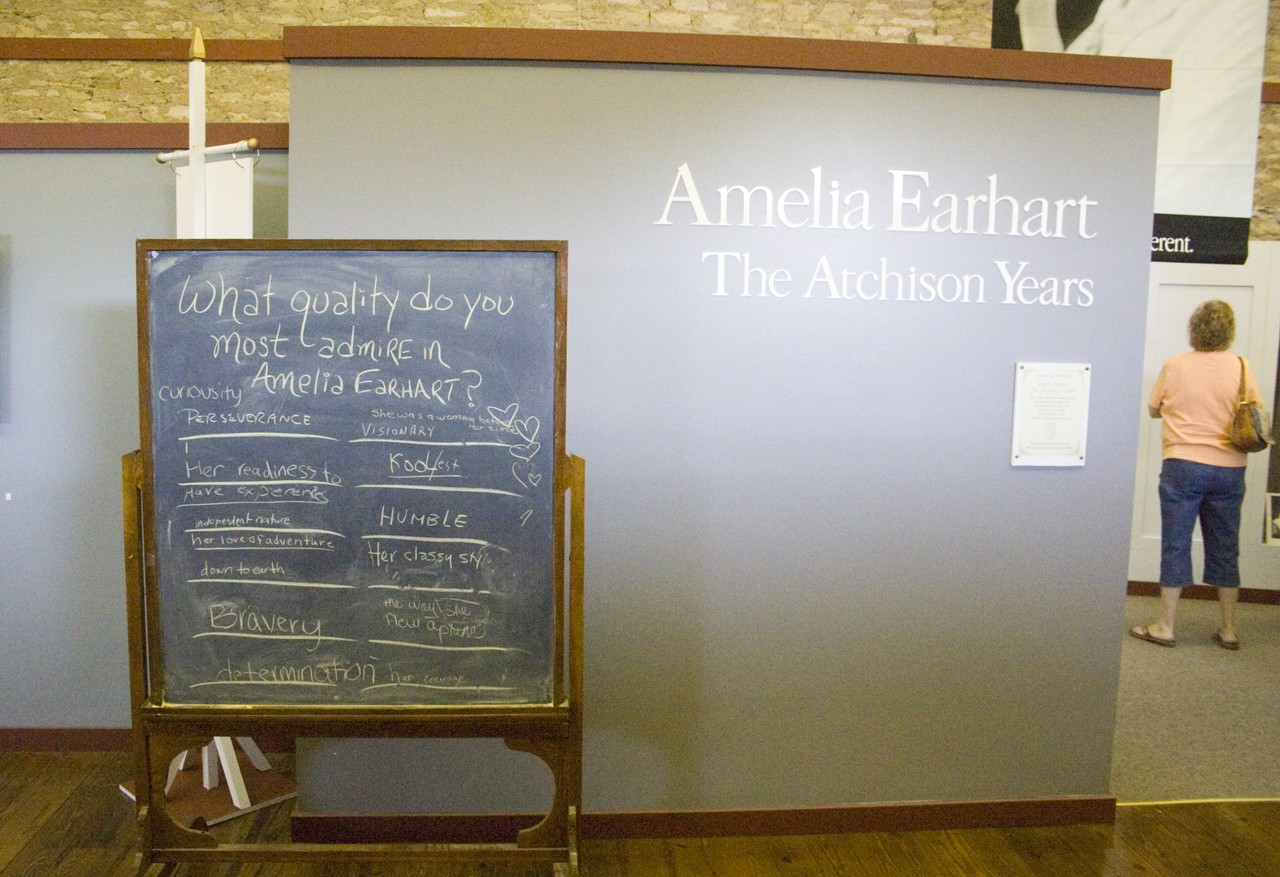 What quality do you
most admire in
Amelia EarHART?
curiousity
PERSEVERANCE
Her readiness to
Have experiences
independent nature
her love of adventure
down to earth
Bravery
determination
She was a woman before
Her time
VISIONARY
Koolest
HUMBLE
Her classy sty
the way she
flew a plane
her courage
Amelia Earhart
The Atchison Years
erent.